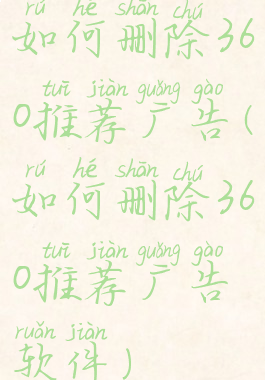 rú hé shān chú
如何删除36
tuī jiàn guǎng gào
0推荐广告(
rú hé shān chú
如何删除36
tuī jiàn guǎng gào
0推荐广告
ruǎn jiàn
软件)